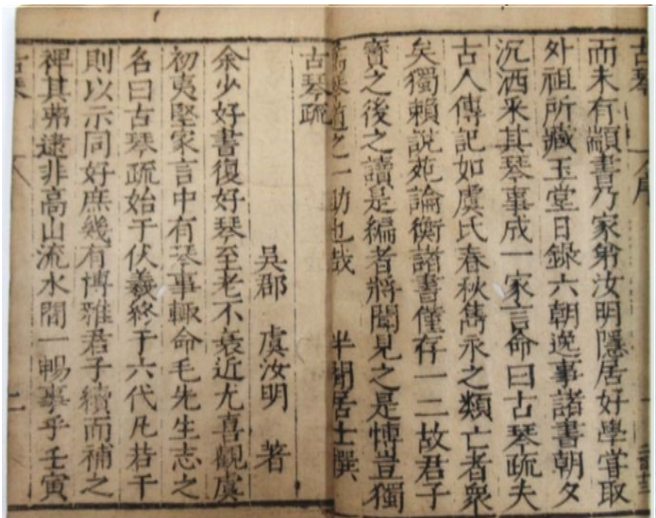 古琴 序
而未有顓書乃家弟汝明隱居好學嘗取
外祖所藏玉堂日錄六朝逸事諸書朝夕
沉酒釆其琴事成一家言命曰古琴疏夫
古人傳記如虞氏春秋雋永之類亡者衆
矣獨賴說苑論衡諸書僅存一二故君子
寶之後之讀是編者將聞見之是愽豈獨
琴道之一助也哉 半閒居士撰
古琴疏
吳郡 虞汝明 著
余少好書復好琴至老不衰近尤喜觀虞
初夷堅家言中有琴事輒命毛先生志之
名曰古琴疏始于伏羲終于六代凡若干
則以示同好庶幾有博雅君子續而補之
裨其弗逮非高山流水間一暢事乎壬寅
古琴 二